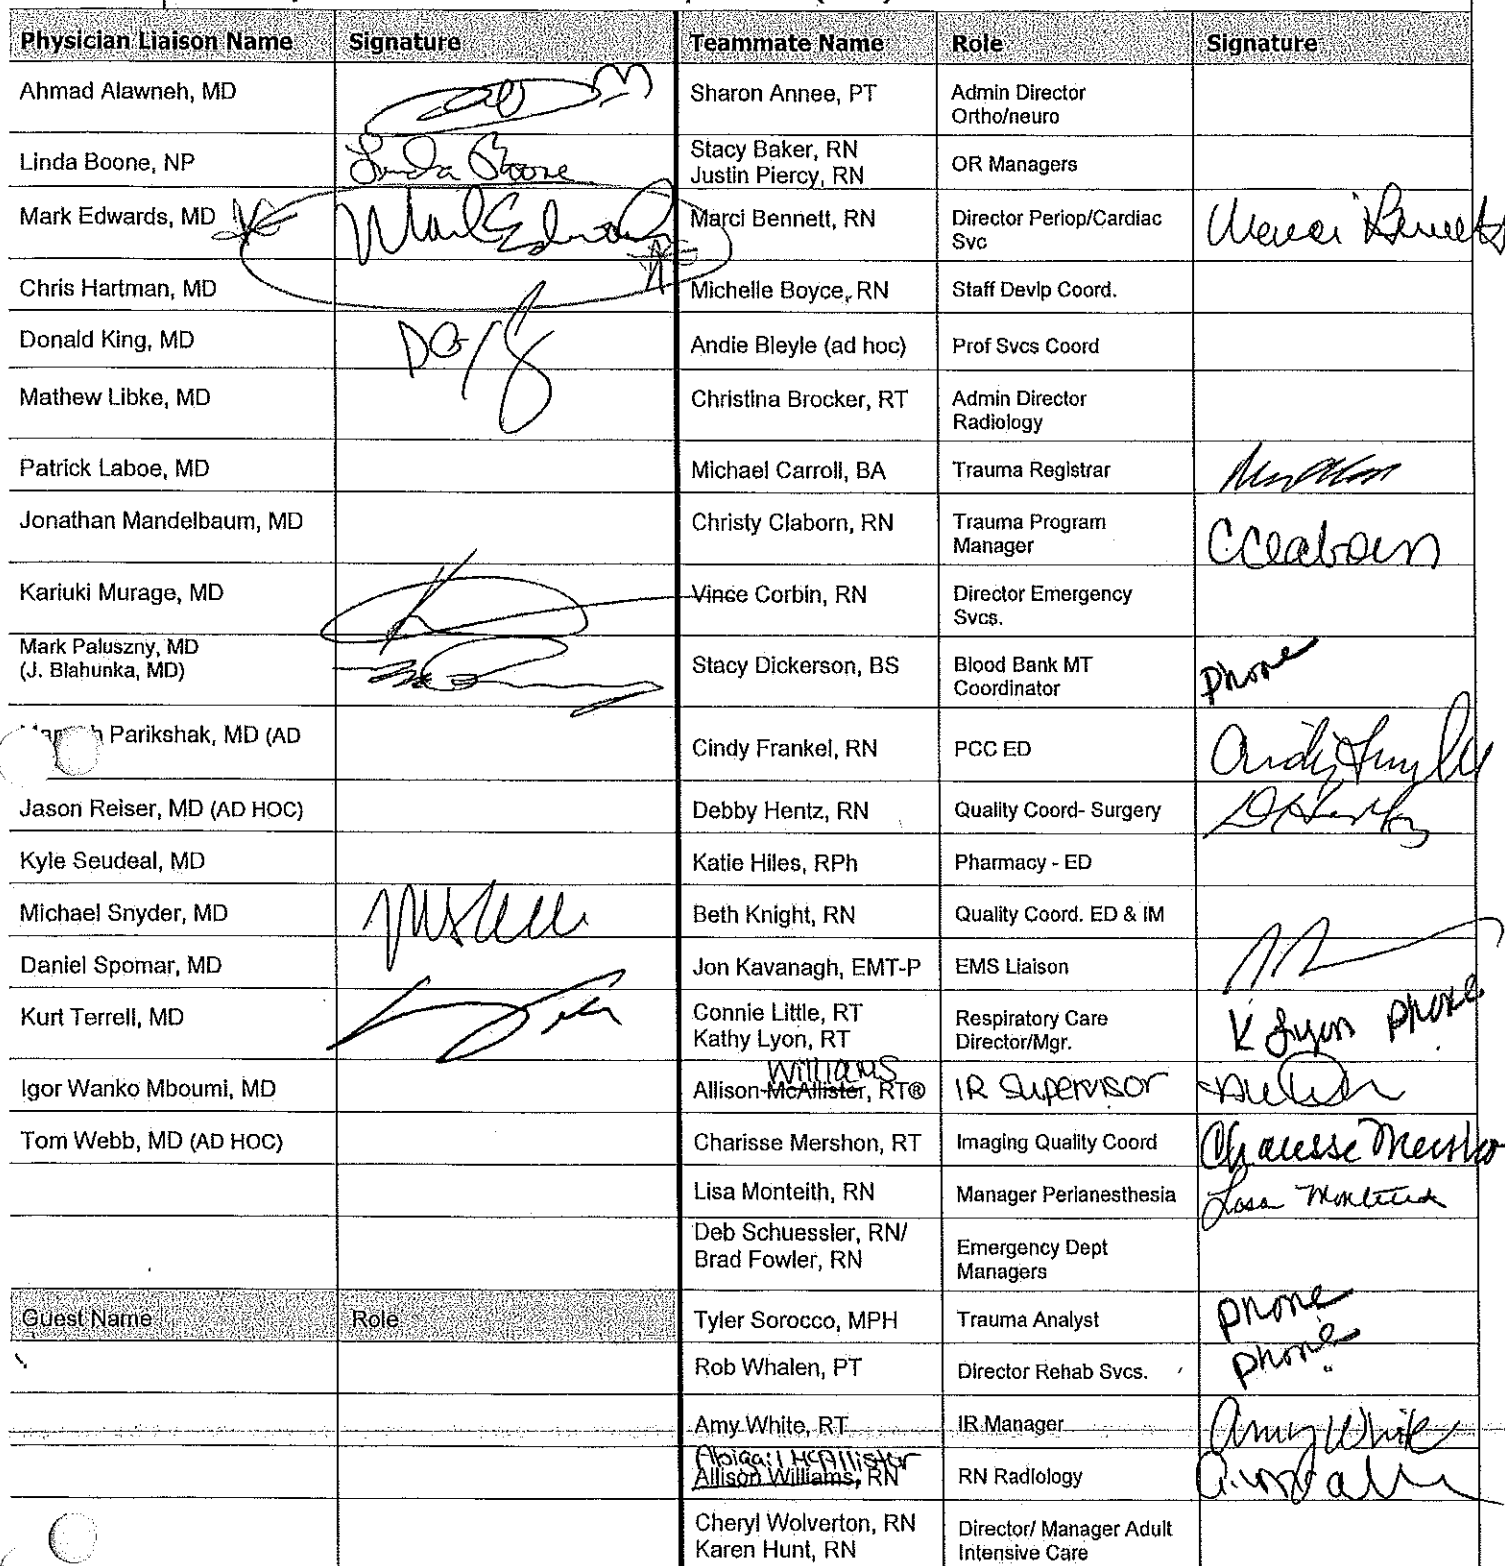 Physician Liaison Name Signature Teammate Name Role Signature
Ahmad Alawneh, MD Sharon Annee, PT Admin Director
Ortho/neuro
Linda Boone, NP Linda Boone Stacy Baker, RN OR Managers
Justin Piercy, RN
Mark Edwards, MD Mark Edwards Marci Bennett, RN Director Periop/Cardiac Marci Bennett
Svc
Chris Hartman, MD Michelle Boyce, RN Staff Devlp Coord.
Donald King, MD Andie Bleyle (ad hoc) Prof Svcs Coord
Mathew Libke, MD Christina Brocker, RT Admin Director
Radiology
Patrick Laboe, MD Michael Carroll, BA Trauma Registrar
Jonathan Mandelbaum, MD Christy Claborn, RN Trauma Program CClaborn
Manager
Kariuki Murage, MD Vince Corbin, RN Director Emergency
Svcs.
Mark Paluszny, MD Stacy Dickerson, BS Blood Bank MT phone
(J. Blahunka, MD) Coordinator
Parikshak, MD (AD Cindy Frankel, RN PCC ED
Jason Reiser, MD (AD HOC) Debby Hentz, RN Quality Coord- Surgery
Kyle Seudeal, MD Katie Hiles, RPh Pharmacy - ED
Michael Snyder, MD Beth Knight, RN Quality Coord. ED & IM
Daniel Spomar, MD Jon Kavanagh, EMT-P EMS Liaison
Kurt Terrell, MD Connie Little, RT Respiratory Care K Lyon phone
Kathy Lyon, RT Director/Mgr.
Williams
Igor Wanko Mboumi, MD Allison McAllister, RT® IR Supervisor
Tom Webb, MD (AD HOC) Charisse Mershon, RT Imaging Quality Coord Charisse Mershon
Lisa Monteith, RN Manager Perianesthesia Lisa Monteith
Deb Schuessler, RN/ Emergency Dept
Brad Fowler, RN Managers
Guest Name Role Tyler Sorocco, MPH Trauma Analyst phone
Rob Whalen, PT Director Rehab Svcs. phone
Amy White, RT IR Manager Amy White
Abigail McAllister
Allison Williams, RN RN Radiology
Cheryl Wolverton, RN Director/ Manager Adult
Karen Hunt, RN Intensive Care